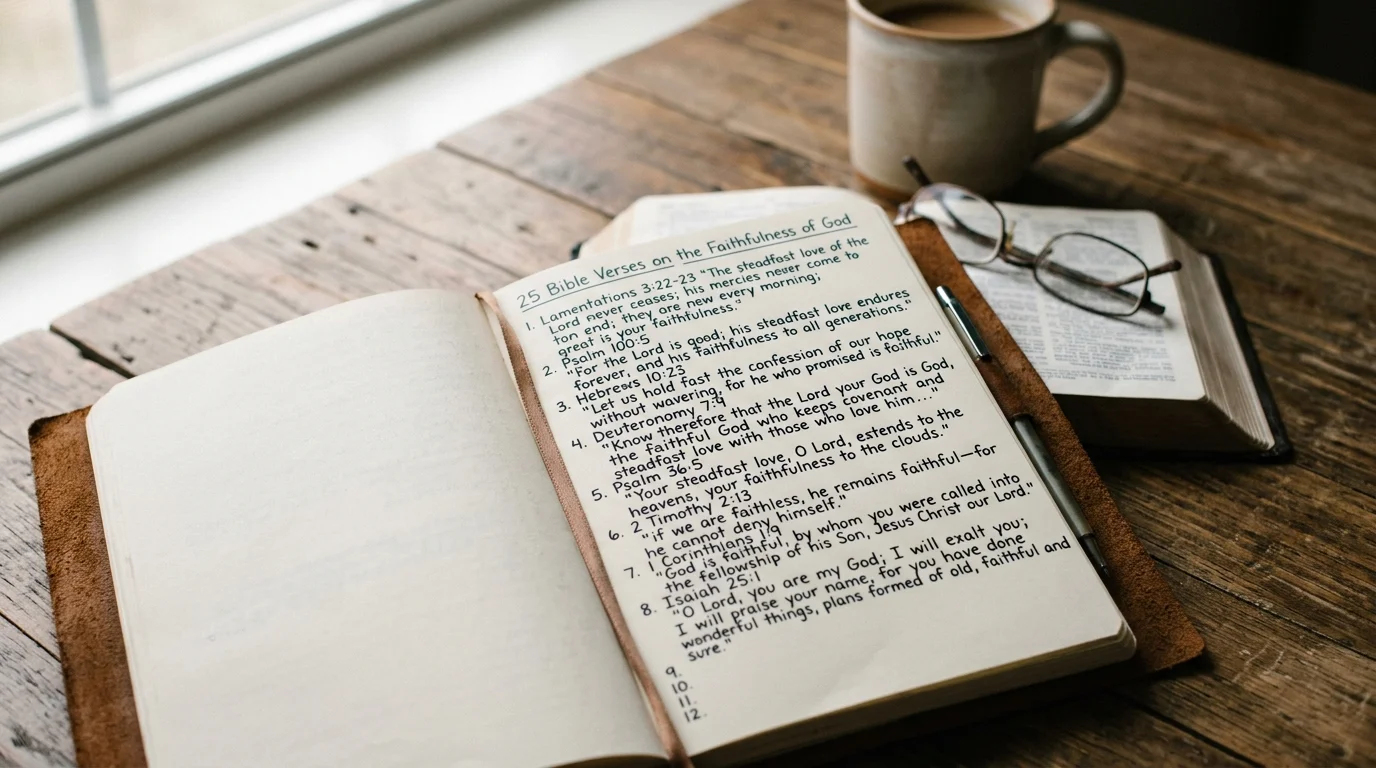 25 Bible Verses on the Faithfulness of God
1. Lamentations 3:22-23 "The steadfast love of the
Lord never ceases; his mercies never come to
ton end; they are new every morning;
great is your faithfulness."
2. Psalm 100:5
"For the Lord is good; his steadfast love endures
forever, and his faithfulness to all generations."
3. Hebrews 10:23
"Let us hold fast the confession of our hope
without wavering, for he who promised is foithful."
4. Deuteronomy 7:9
"Know therefore that the Lord your God is God,
the faithful God who keeps covenant and
steadfast love with those who love him..."
5. Psalm 36:5
"Your steadfast love, O Lord, estends to the
heavens, your faithfulness to the clouds."
6. 2 Timothy 2:13
"if we are faithless, he remains faithful—for
he cannot deny himself."
7. 1 Corinthians 1:9
"God is faithful, by whom you were called into
the fellowship of his Son, Jesus Christ our Lord."
8. Isaiah 25:1
"O Lord, you are my God; I will exalt you;
I will praise your name, for you have done
wonderful things, plans formed of old, faithful and
sure."
9.
10.
11.
12.